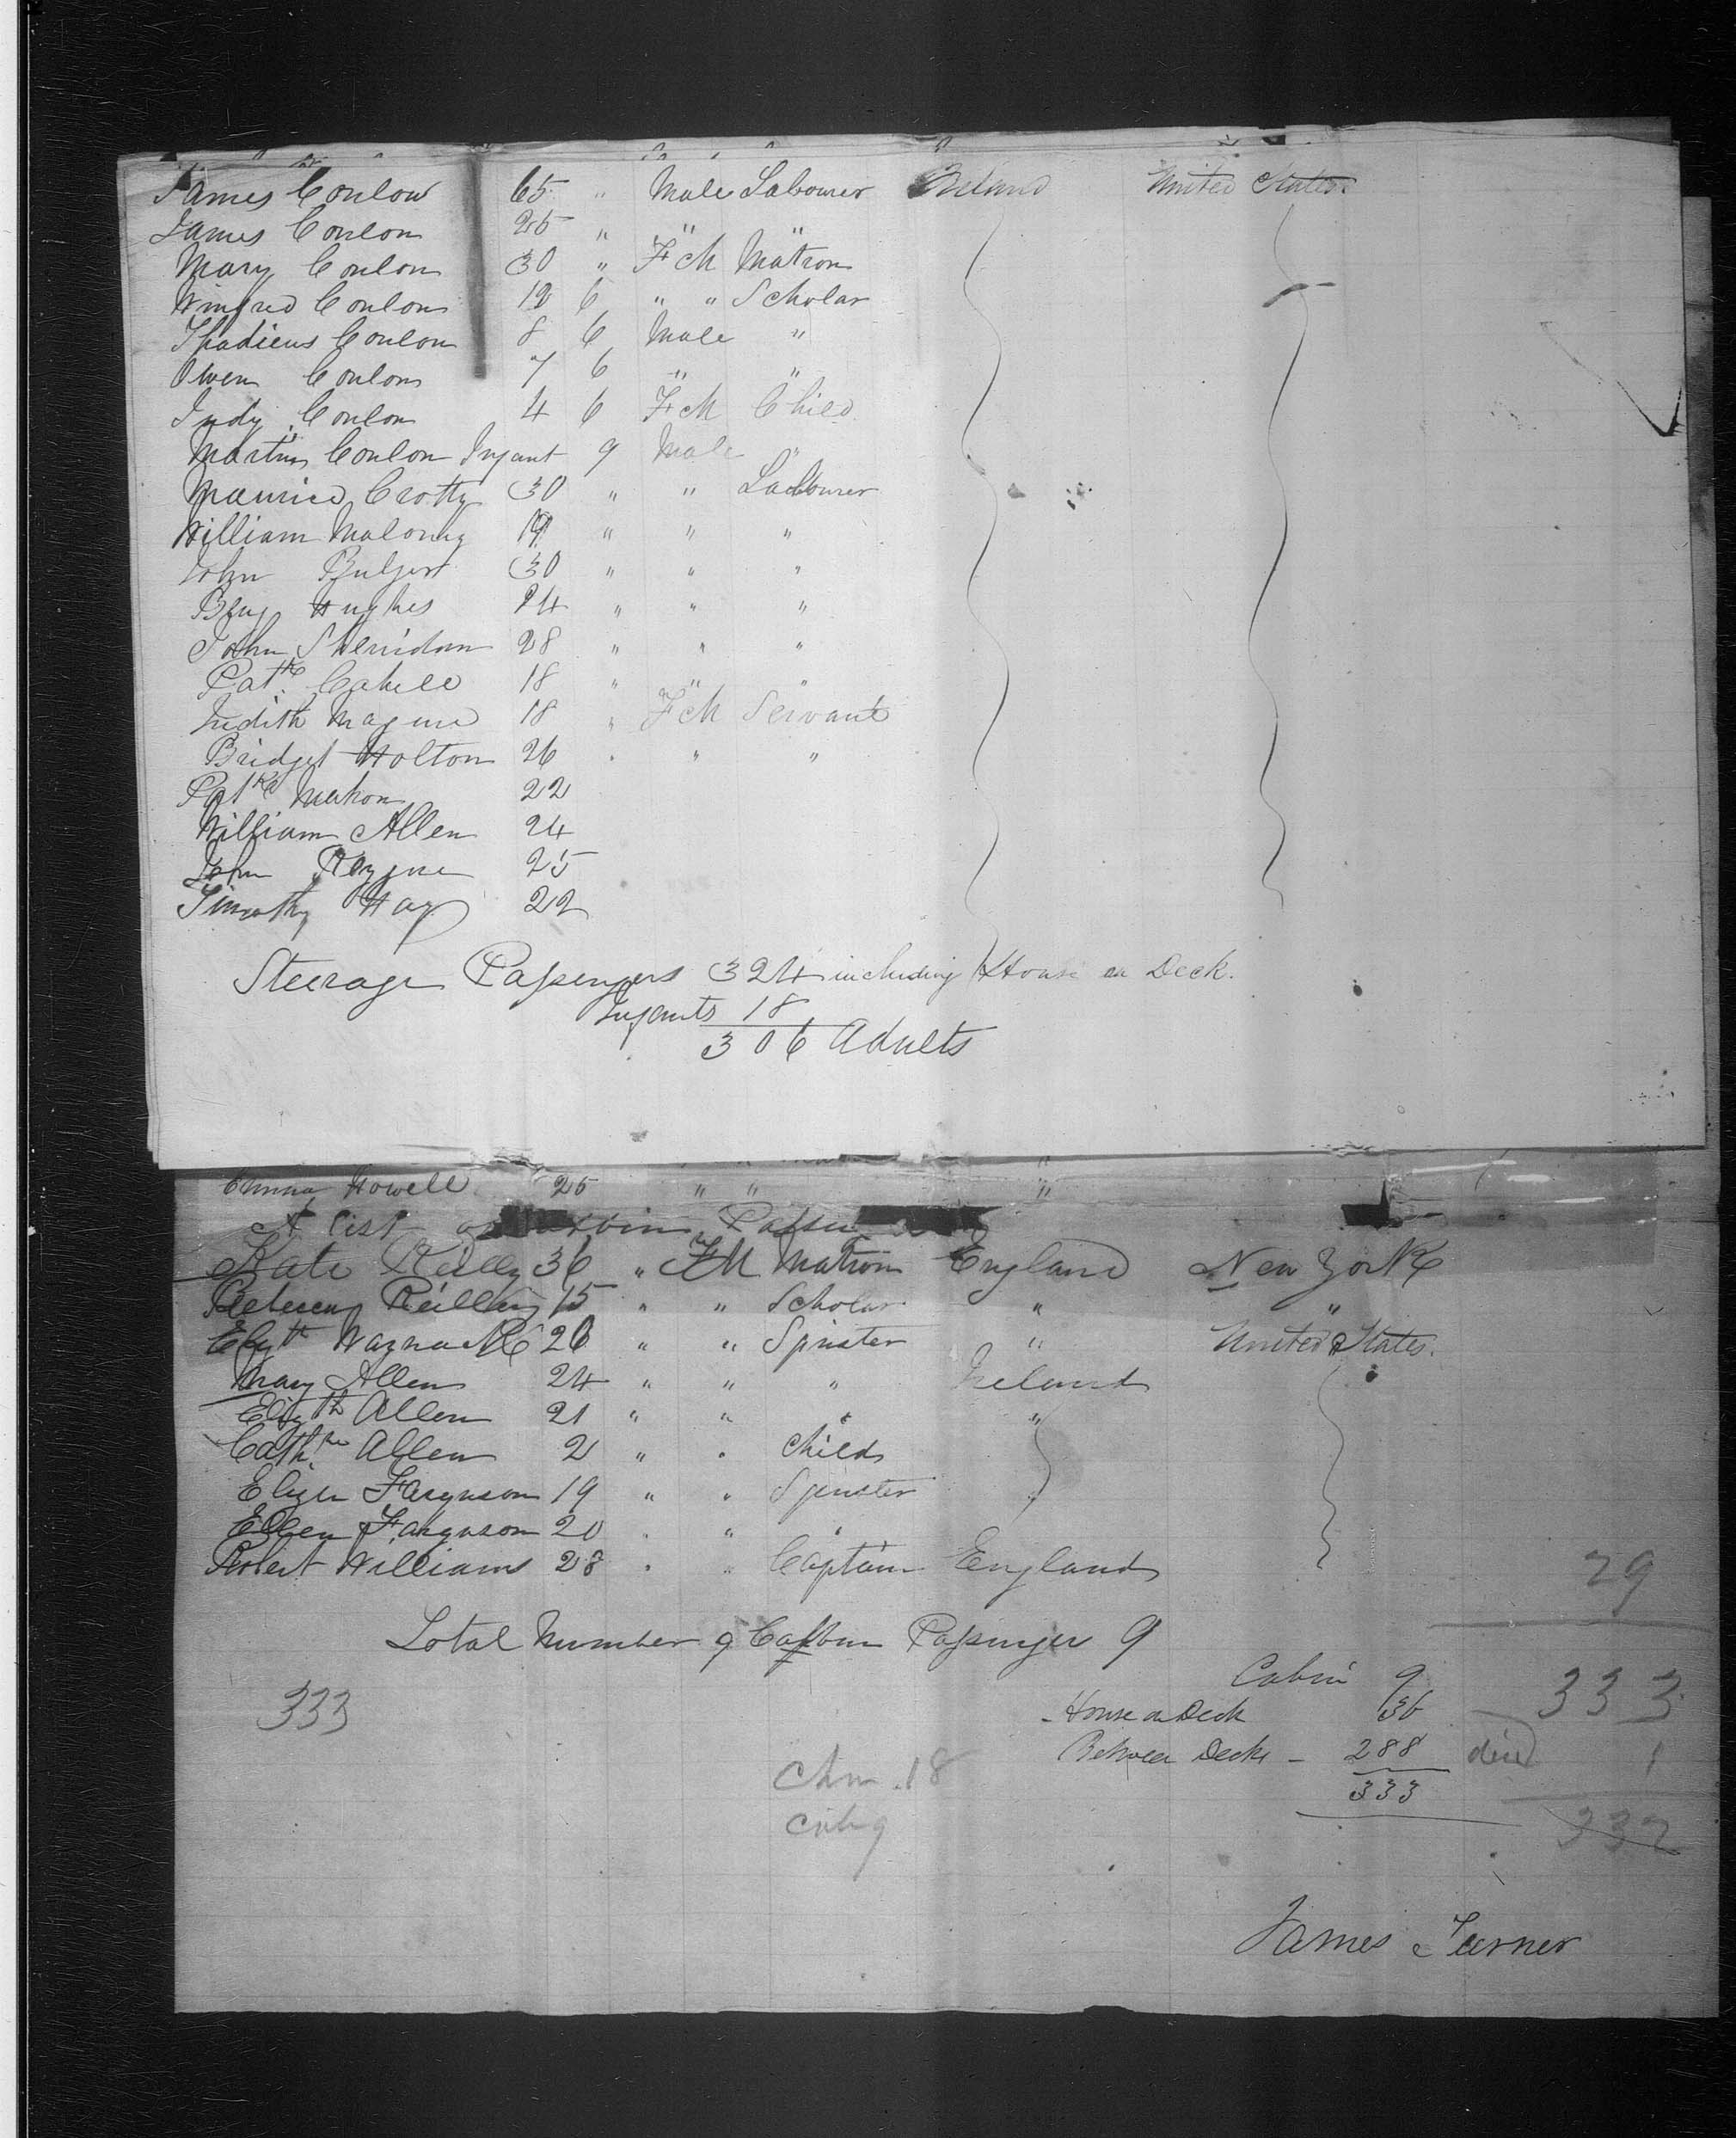 James Conlow 65 " Male Labourer Ireland United States.
James Conlon 25 " " "
Mary Conlon 30 " FeM Matron
Winfred Conlon 12 6 " " Scholar
Thadieus Conlon 8 6 Male "
Owen Conlon 7 6 " "
Judy Conlon 4 6 FeM Child
Martin Conlon Infant 9 Male "
Maurice Crotty 30 " " Labourer
William Malony 19 " " "
John Bulger 30 " " "
Benj Hughes 24 " " "
John Sheridan 28 " " "
Patk Cahill 18 " " "
Judith Maguire 18 " FeM Servant
Bridget Holton 26 " " "
Patk Mahon 22
William Allen 24
John 25
Timothy Hay 22
Steerage Passengers 324 including House on Deck.
Infants 18
306 Adults
Emma Howell 25 " " "
A list of Cabin
Kate Reilly 36 " FM Matron England New York
Rebecca Reilley 15 " " Scholar " "
Elizth 26 " " Spinster " United States.
Mary Allen 24 " " " Ireland
Elizth Allen 21 " " " "
Cathne Allen 2 " " Child
Eliza Ferguson 19 " " Spinster
Ellen Ferguson 20 " " "
Robert Williams 28 " " Captain England
29
Total Number of Cabin Passenger 9
Cabin 9
333
333
House on Deck 36
Between Decks - 288
died 1
333
Chn. 18
cab 9
332
James Turner